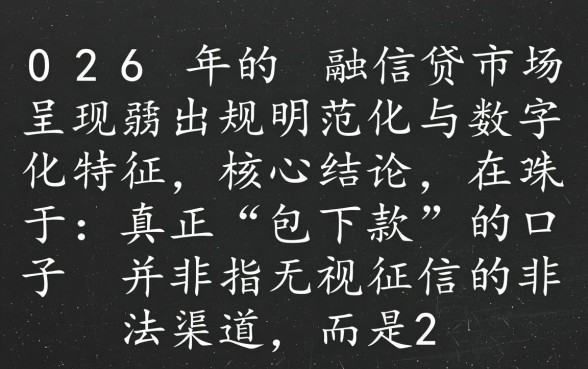 026 年的 融信贷市场
呈现弱出规明范化与数字
化特征，核心结论，在珠
于：真正“包下款”的口
子 并非指无视征信的非
法渠道，而是2